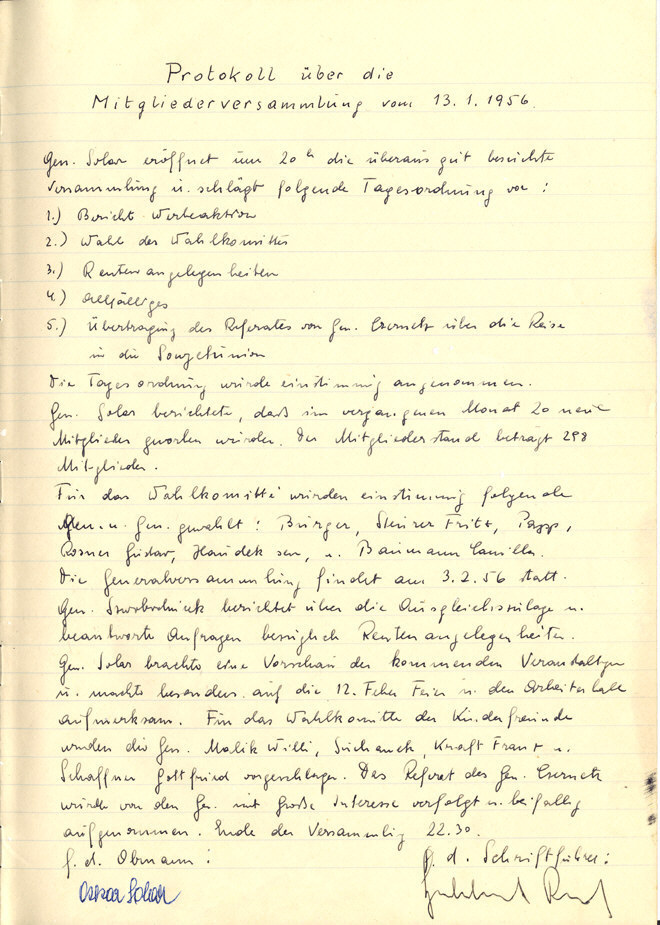 Protokoll über die
Mitgliederversammlung vom 13.1.1956.
Gen. Solar eröffnet um 20 h die überaus gut besuchte
Versammlung u. schlägt folgende Tagesordnung vor:
1.) Bericht Werbeaktion
2.) Wahl des Wahlkomittes
3.) Rentenangelegenheiten
4.) Allfälliges
5.) Übertragung des Referates von Gen. Czernetz über die Reise
in die Sowjetunion
Die Tagesordnung wurde einstimmig angenommen.
Gen. Solar berichtete, daß im vergangenen Monat 20 neue
Mitglieder geworben wurden. Der Mitgliederstand beträgt 298
Mitglieder.
Für das Wahlkomitte wurden einstimmig folgende
Gen. u. Gen. gewählt: Burger, Steurer Fritz, Papp,
Rosner Gustav, Haudek sen, u. Baumann Camilla.
Die Generalversammlung findet am 3.2.56 statt.
Gen. berichtet über die Ausgleichszulage u.
beantworte Anfragen bezüglich Rentenangelegenheiten.
Gen. Solar brachte eine Vorschau der kommenden Veranstaltgen
u. machte besonders auf die 12. Feber Feier in den Arbeiterball
aufmerksam. Für das Wahlkomitte der Kinderfreunde
wurden die Gen. Malik Willi, Kraft Franz u.
Schaffner Gottfried vorgeschlagen. Das Referat des Gen. Czernetz
wurde von den Gen. mit große Interesse verfolgt u. beifällig
aufgenommen. Ende der Versammlung 22.30.
f. d. Obmann: f. d. Schriftführer:
Oskar Solar